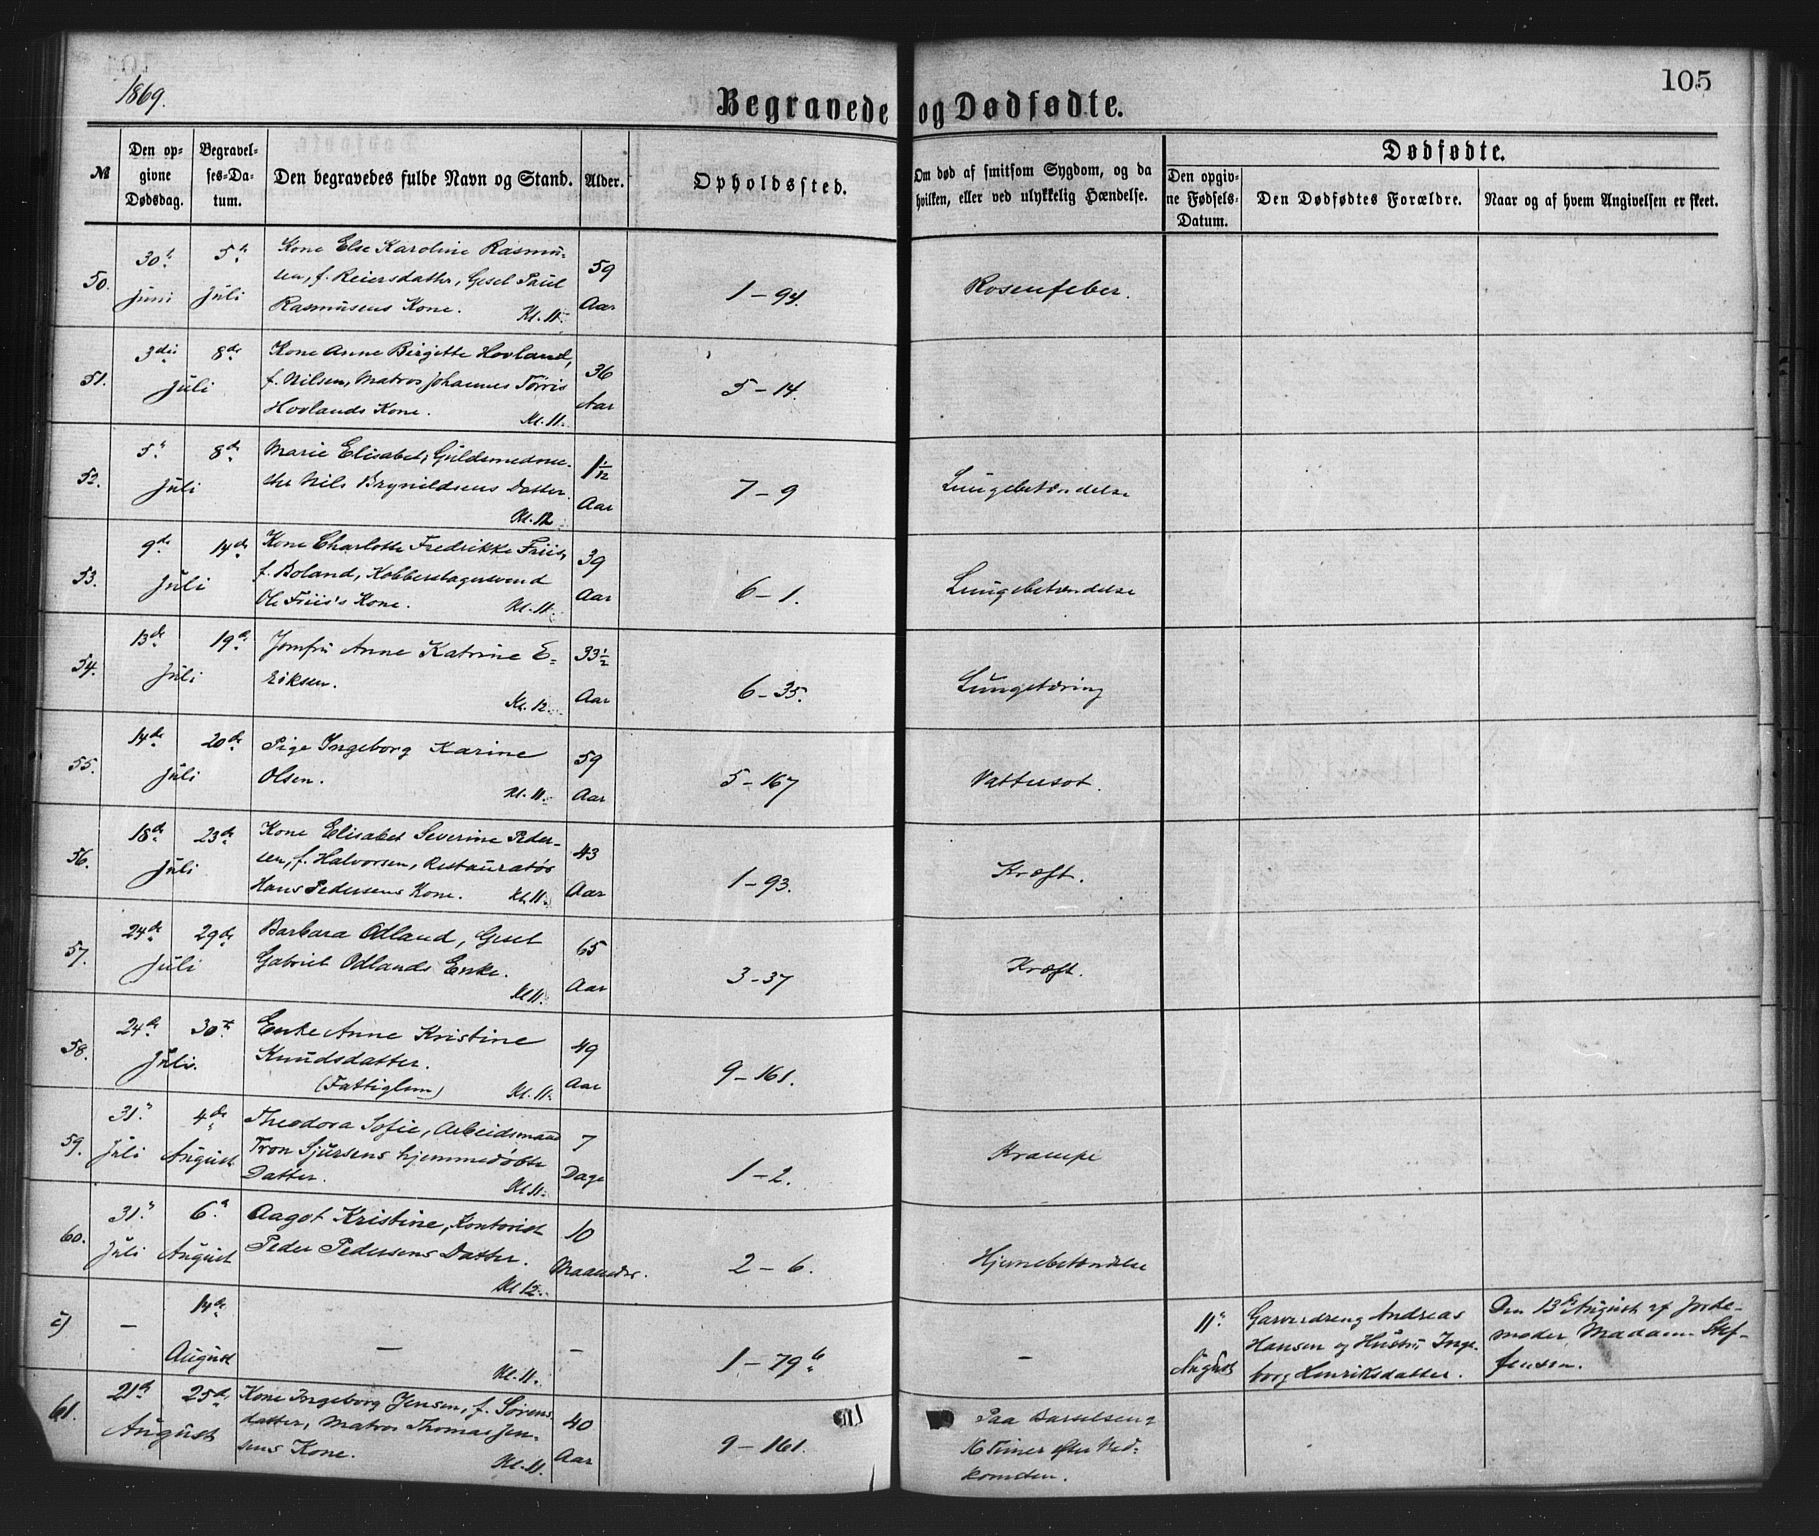 1869.
105
Begravede og Dødfødte.
№
Den op-
givne
Dødsdag.
Begravel-
ses-Da-
tum.
Den begravedes fulde Navn og Stand.
Alder.
Opholdssted.
Om død af smitsom Sygdom, og da
hvilken, eller ved ulykkelig Hændelse.
Dødfødte.
Den opgiv-
ne Fødsels-
Datum.
Den Dødfødtes Forældre.
Naar og af hvem Angivelsen er skeet.
50.
30 Juni
5 Juli
Kone Else Karoline Rasmu-
sen, f. Reiersdatter, Gesel Paul
Rasmusens Kone. Kl. 11.
59 Aar
1 - 94.
Rosenfeber.
51.
3die 8de Juli
Kone Anne Birgitte Hovland,
f. Nilsen, Matros Johannes Tørris
Hovlands Kone. Kl. 11.
36 Aar
5 - 14.
52.
5 8de Juli
Marie Elisabet, Guldsmedme-
ster Nils Brynildsens Datter.
Kl. 12
1 1/12 Aar
7 - 9
Lungebetændelse
53.
9de 14de Juli
Kone Charlotte Fredrikke Friis,
f. Boland, Kobberslagersvend
Ole Friis's Kone. Kl. 11.
39 Aar
6 - 1.
Lungebetændelse
54.
13de 19de Juli
Jomfru Anne Katrine E-
riksen.
Kl. 12.
33 1/2 Aar
6 - 35.
Lungetæring
55.
14de 20de Juli
Pige Ingeborg Karine
Olsen.
Kl. 11.
59 Aar
5 - 167
Vattersot.
56.
18de 23de Juli
Kone Elisabet Severine Peder-
sen, f. Halvorsen, Restauratør
Hans Pedersens Kone. Kl. 11.
43 Aar
1 - 93.
Kræft.
57.
24de 29de Juli
Barbara Odland, Gesel
Gabriel Odlands Enke.
Kl 11.
65 Aar
3 - 37
Kræft.
58.
24de 30te Juli.
Enke Anne Kristine
Knudsdatter.
(Fattiglem) Kl. 11.
49 Aar
9 - 161.
59.
31. Juli
4de August
Theodora Sofie, Arbeidsmand
Tron Sjursens hjemmedøbte
Datter. Kl 11.
7 Dage
1 - 2.
Krampe
60.
31. Juli
6. August
Aagot Kristine, Kontorist
Peder Pedersens Datter.
Kl 12.
10 Maaneder.
2 - 6.
Hjernebetændelse
c)
-
14de August
-
Kl. 11.
-
1 - 79 b
-
11 August
Garverdreng Andreas
Hansen og Hustru Inge-
borg Henriksdatter.
Den 13de August af Jorde-
moder Madam Stef-
fensen.
61.
21de 25de August
Kone Ingeborg Jensen, f. Sørens-
datter, Matros Thomas Jen-
sens Kone. Kl. 11.
40 Aar
9 - 161.
Paa Barselseng
16 Timer efter Ned-
komsten.